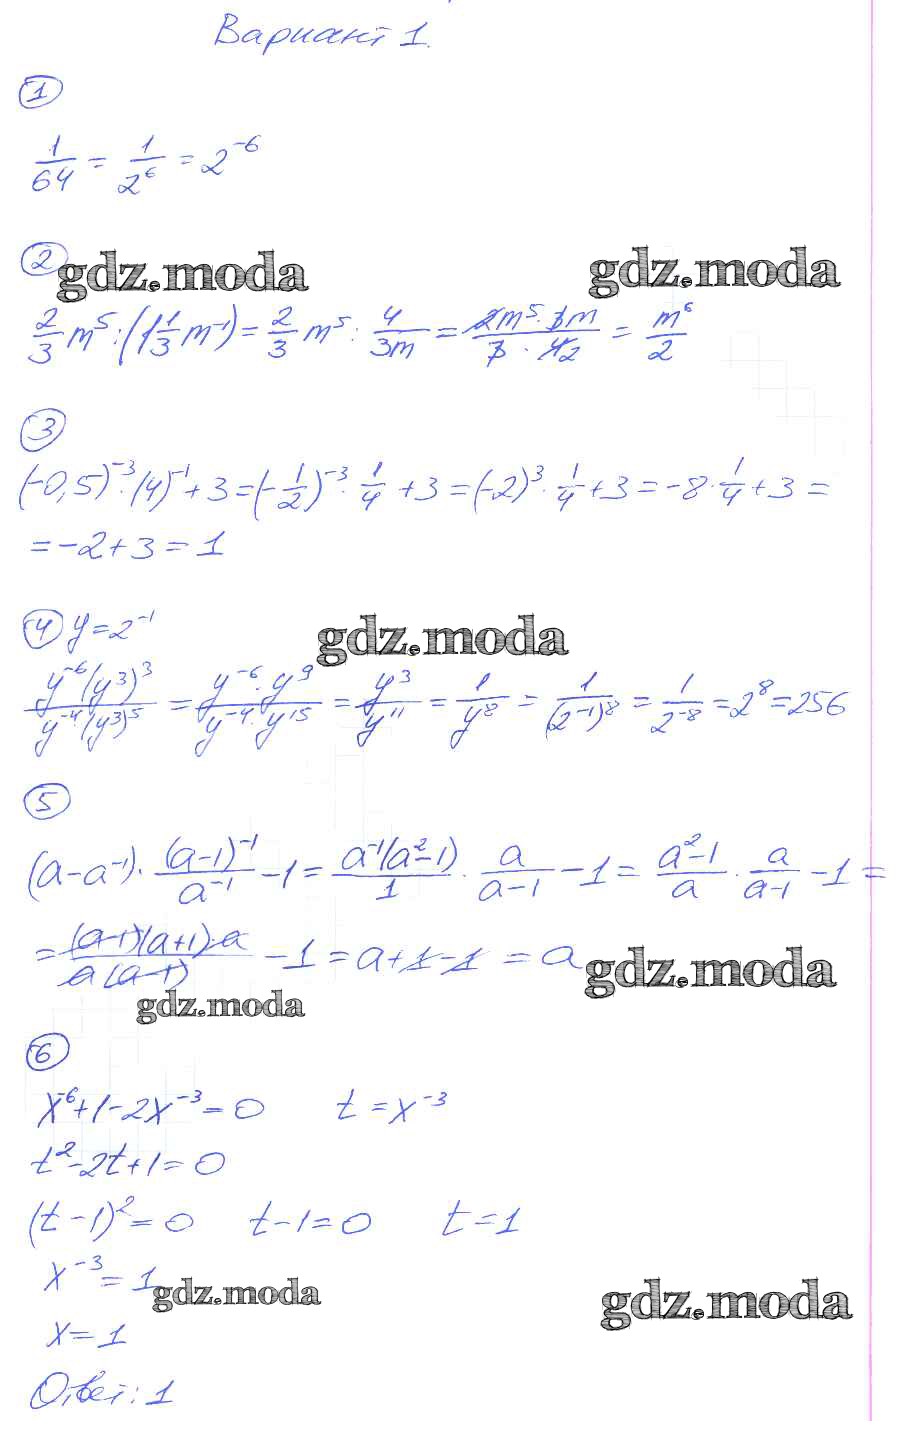 Вариант 1.
1
1/64 = 1/2⁶ = 2⁻⁶
2
gdz.moda gdz.moda
2/3 m⁵ : (1 1/3 m⁻¹) = 2/3 m⁵ : 4/3m = 2m⁵ · 3m / 3 · 4 2 = m⁶/2
3
(-0,5)⁻³ · (4)⁻¹ + 3 = (-1/2)⁻³ · 1/4 + 3 = (-2)³ · 1/4 + 3 = -8 · 1/4 + 3 =
= -2 + 3 = 1
4 y = 2⁻¹
gdz.moda
y⁻⁶(y³)³ / y⁻⁴·(y³)⁵ = y⁻⁶ · y⁹ / y⁻⁴ · y¹⁵ = y³/y¹¹ = 1/y⁸ = 1/(2⁻¹)⁸ = 1/2⁻⁸ = 2⁸ = 256
5
(a - a⁻¹) · (a-1)⁻¹/a⁻¹ - 1 = a⁻¹(a²-1)/1 · a/a-1 - 1 = a²-1/a · a/a-1 - 1 =
= (a-1)(a+1)·a / a(a-1) - 1 = a + 1 - 1 = a
gdz.moda
gdz.moda
6
x⁻⁶ + 1 - 2x⁻³ = 0 t = x⁻³
t² - 2t + 1 = 0
(t - 1)² = 0 t - 1 = 0 t = 1
x⁻³ = 1
gdz.moda gdz.moda
x = 1
Ответ: 1